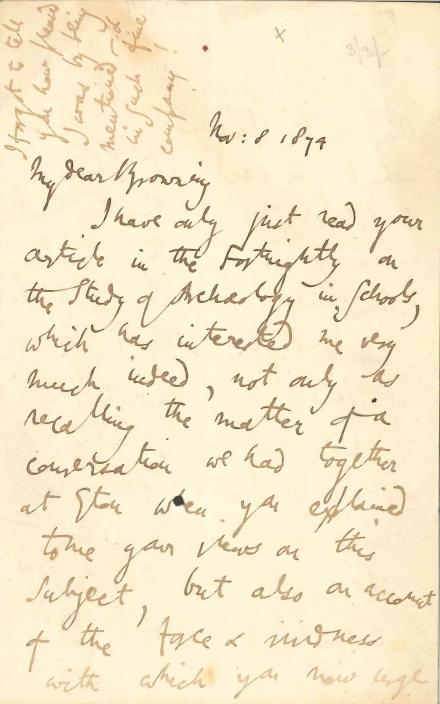 I forgot to tell
you how proud
I was by being
mentioned
in such fine
company!
x
3/3/-
Nov: 8 1874
My dear Browning
I have only just read your
article in the Fortnightly on
the Study of Archaeology in Schools,
which has interested me very
much indeed, not only as
recalling the matter of a
conversation we had together
at Eton when you explained
to me your views on this
subject, but also on account
of the force &
with which you now urge